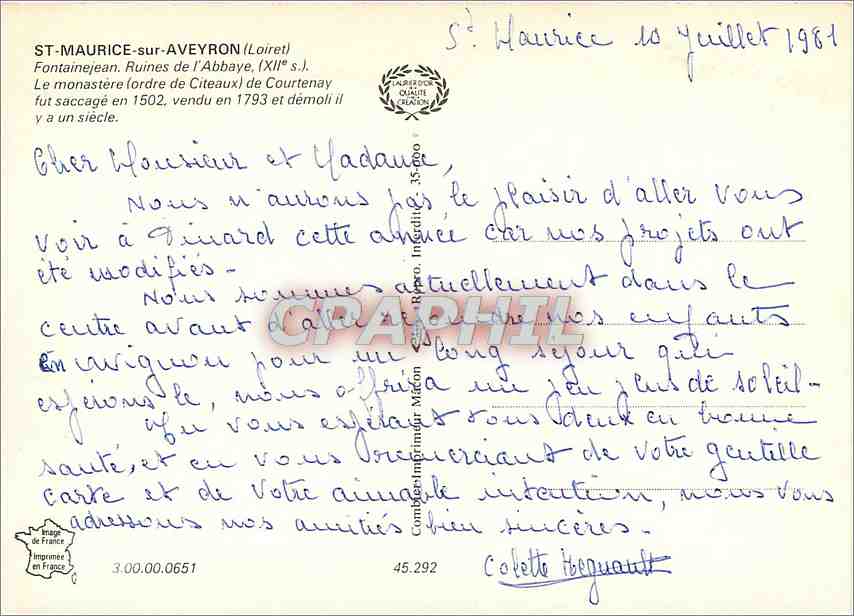 ST-MAURICE-sur-AVEYRON (Loiret)
Fontainejean. Ruines de l'Abbaye, (XIIe s.).
Le monastère (ordre de Citeaux) de Courtenay
fut saccagé en 1502, vendu en 1793 et démoli il
y a un siècle.
St. Maurice 10 Juillet 1981
LAURIER D'OR
DE LA
QUALITÉ
CRÉATION
Cher Monsieur et Madame,
Nous n'aurons pas le plaisir d'aller vous
voir à Dinard cette année car nos projets ont
été modifiés -
Nous sommes actuellement dans le
centre avant d'aller rejoindre nos enfants
en Avignon pour un long séjour qui
espérons le, nous offrira un peu plus de soleil -
En vous espérant tous deux en bonne
santé, et en vous remerciant de votre gentille
carte et de votre aimable intention, nous vous
adressons nos amitiés bien sincères -
Colette
Combier Imprimeur Mâcon
Repro. Interdite 35-000
CPAPHIL
Image
de France
Imprimée
en France
3.00.00.0651
45.292